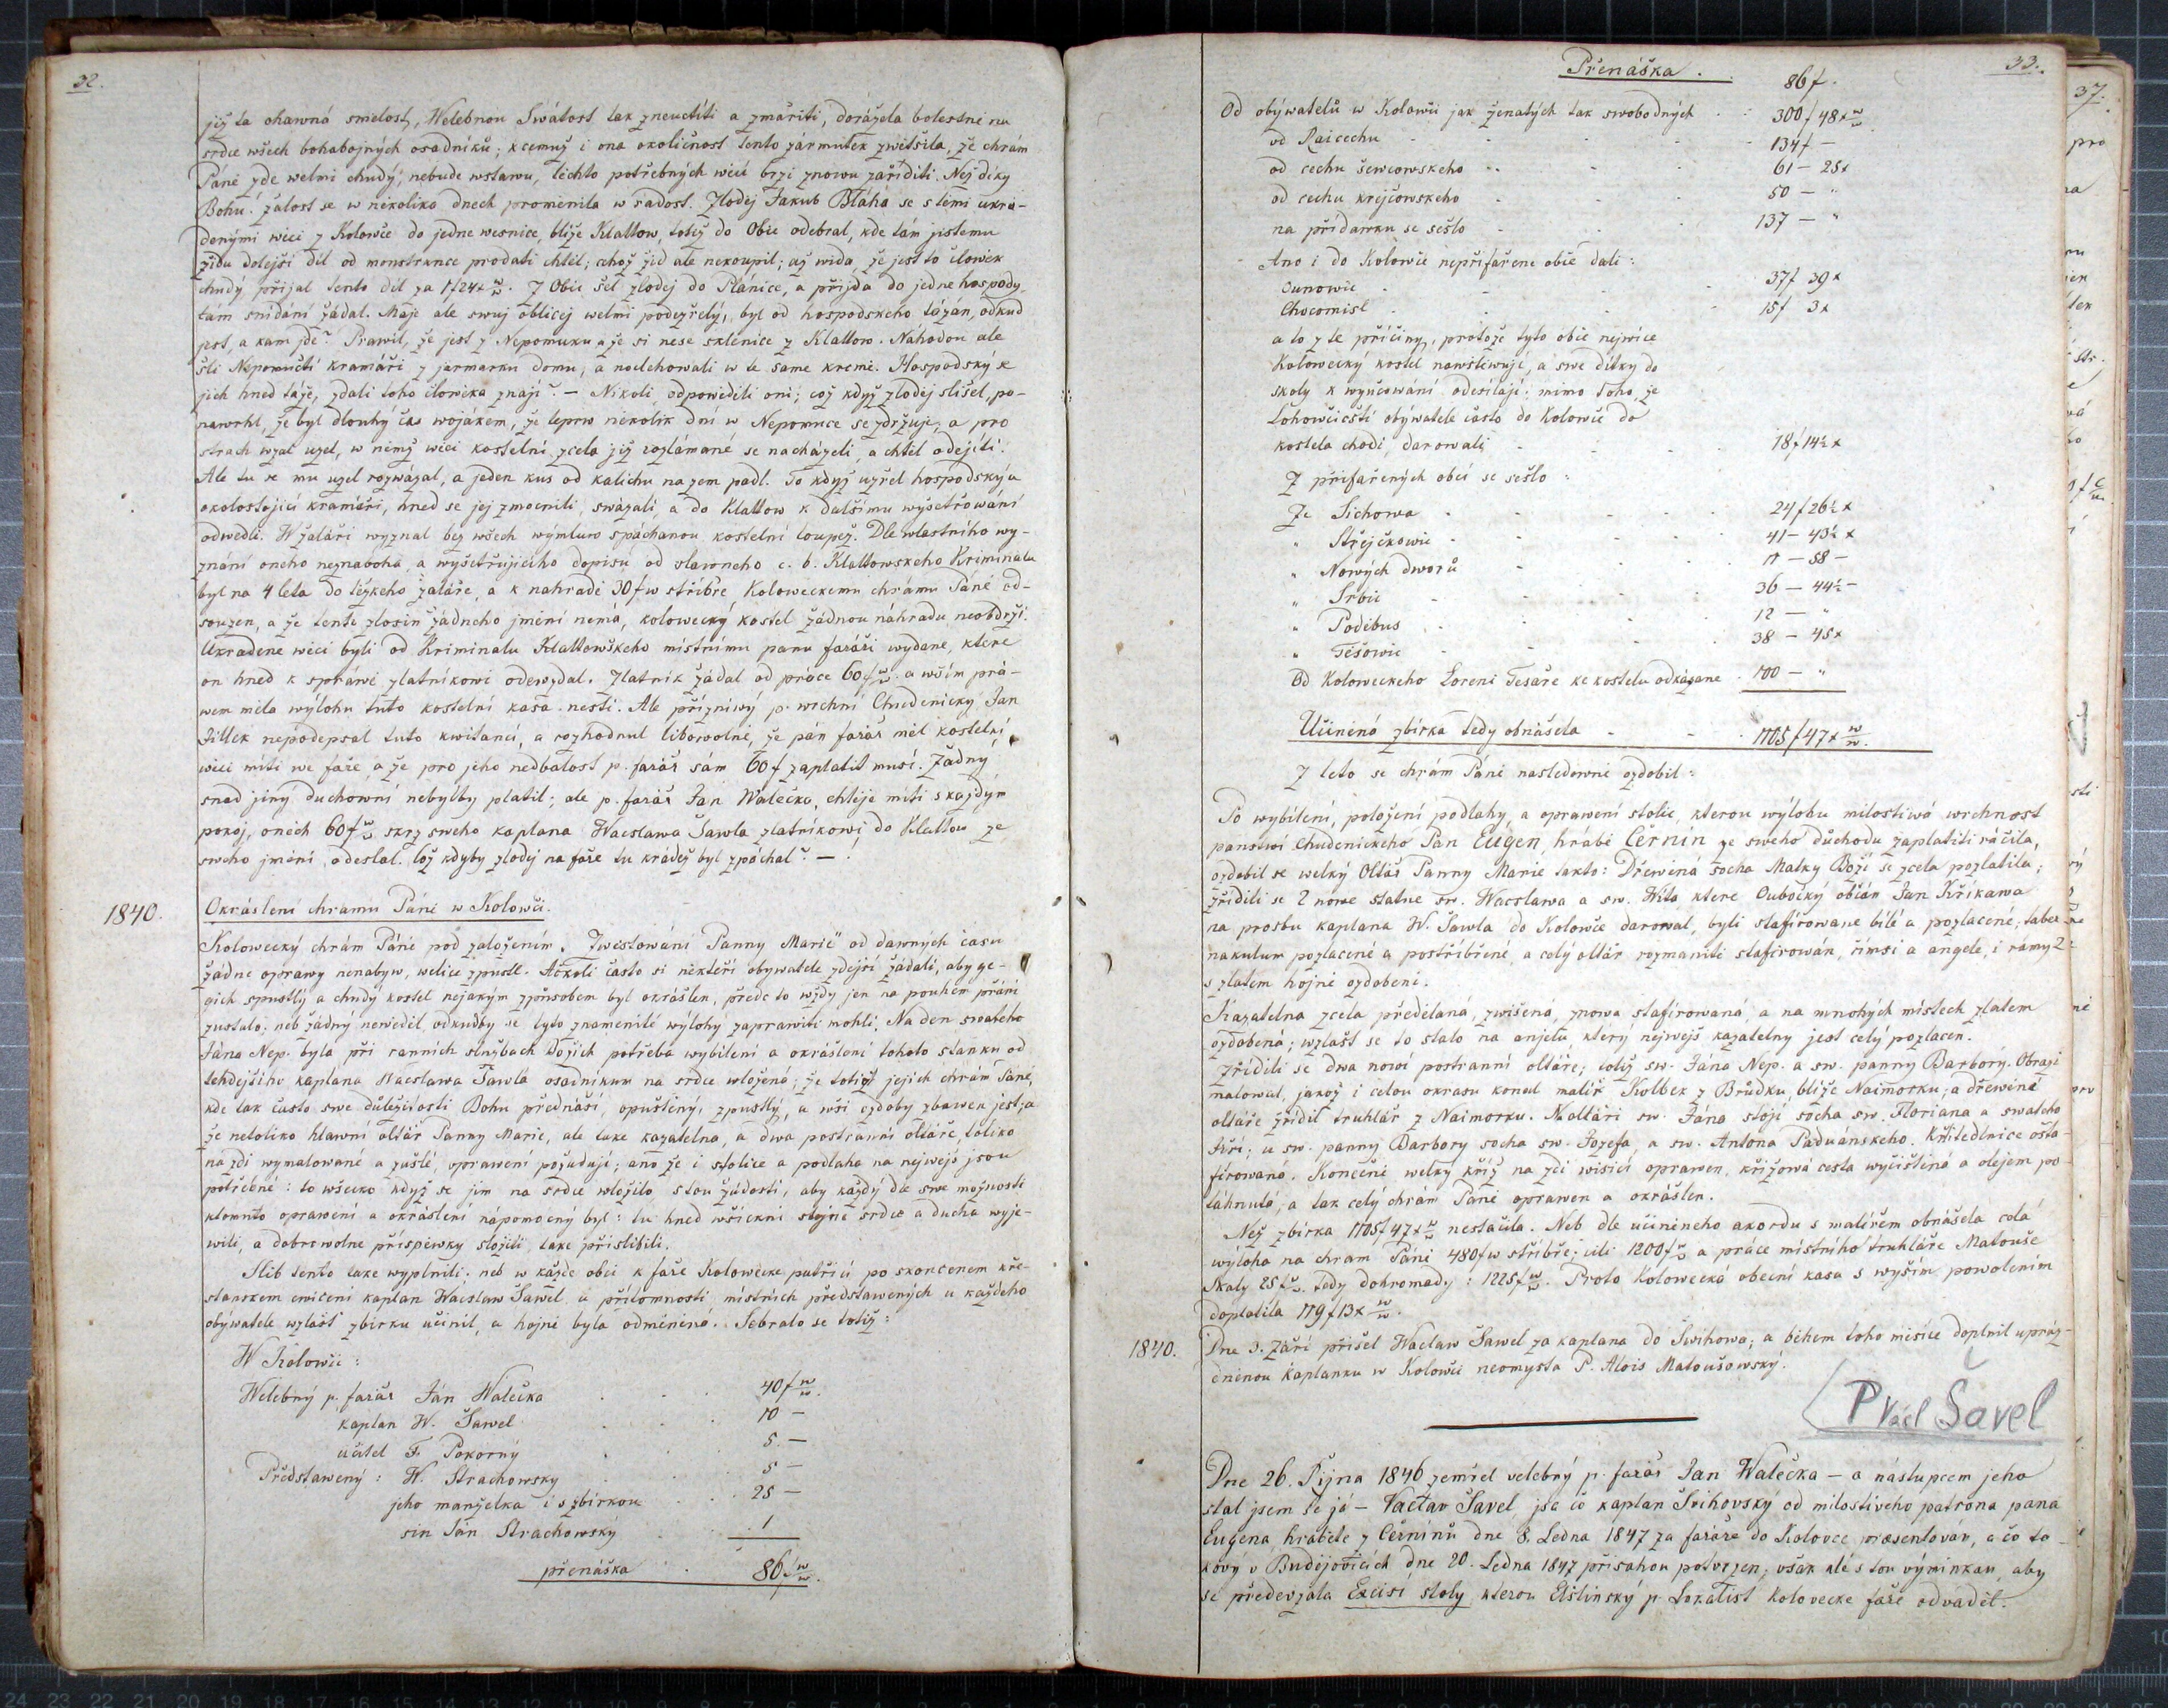 32.
již ta ohawná smělost, Welebnou Swátost tak zneuctíti a zmařiti, dorážela bolestně na
srdce wšech bohabojných osadníků; k čemuž i ona okoličnost tento zármutek zwětšila, že chrám
Páně zde welmi chudý, nebude wstawu, těchto potřebných wěcí brzi znowu zaříditi. Než díky
Bohu! žalost se w několiko dnech proměnila w radost. Zloděj Jakub Bláha se s těmi ukra-
denými wěcí z Kolowče do jedne wesnice, blíže Klattow, totiž do Obic odebral, kde tám jistemu
židu dolejší díl od monstrance prodati chtěl; čehož žid ale nekoupil; až wida, že jest to člowěk
chudý přijal tento díl za 1f 24x w/w. Z Obic šel zloděj do Plánice, a přijda do jedne hospody,
tam snídání žádal. Maje ale swůj obličej welmi podezřelý, byl od hospodského tázán, odkud
jest, a kam jde? Prawil, že jest z Nepomuku a že si nese sklenice z Klattow. Náhodou ale
šli Nepomučtí kramáři z jarmarku domu, a noclehowali w te same krčmě. Hospodský se
jich hned táže, zdali toho člowěka znají? — Nikoli, odpowěděli oni; což když zloděj slišel, po-
nawrhl, že byl dlouhý čas wojákem, že teprw několik dní w Nepomuce se zdržuje, a pro
strach wzal uzel, w němž wěci kostelní zcela již rozlámané se nacházeli, a chtěl odejíti.
Ale tu se mu uzel rozwázal, a jeden kus od kalichu na zem padl. To když uzřel hospodský a
okolostojící kramáři, hned se jej zmocnili, swázali, a do Klattow k dalšímu wyšetřowání
odwedli. W žaláři wyznal bez wšech wýmluw spáchanou kostelní loupež. Dle wlastního wy-
znání onoho neznaboha, a wyšetřujícího dopisu od slawneho c. k. Klattowskeho Kriminalu
byl na 4 leta do těžkeho žaláře, a k nahradě 30f w stříbře Koloweckemu chrámu Páně od-
souzen, a že tento zlosin žádneho jmění nemá, kolowecký kostel žádnou náhradu neobdrží.
Ukradene wěci byli od Kriminalu Klattowského místnímu panu faráři wydane, ktere
on hned k spráwě zlatníkowi odewzdal. Zlatník žádal od práce 60f w/w. a wším prá-
wem měla wýlohu tuto kostelní kasa nesti. Ale přízniwý p. wrchní Chudenický Jan
Jillek nepodepsal tuto kwitanci, a rozhodnul libowolně, že pán farář měl kostelní
wěci míti we faře, a že pro jeho nedbalost p. farář sám 60f zaplatit musí. Žádny
snad jiný duchowní nebylby platil; ale p. farář Jan Walečka, chtěje míti s každým
pokoj, oněch 60f w/w skrz sweho kaplana Wacslawa Šawla zlatníkowi do Klattow ze
sweho jmění odeslal. Což kdyby zloděj na faře tu krádež byl zpáchal? —.
1840. Okráslení chramu Páně w Kolowči.
Kolowecký chrám Páně pod založením „Zwěstowání Panny Marie" od dawných času
žádne oprawy nenabyw, welice zpustl. Ačkoli často si někteří obywatele zdejší žádali, aby ge-
gich spustlý a chudý kostel nějakým zpúsobem byl okrášlen, předc to wždy jen na pouhém přání
zustalo; neb žádný newěděl, odkudby se tyto znamenité wýlohy zaprawiti mohli. Na den swateho
Jána Nep. byla při ranních službach Božích potřeba wybílení a okrášlení tohoto stanku od
tehdejšího kaplana Wacslawa Šawla osadníkum na srdce wložená; že totiž jejich chrám Páně,
kde tak často swe důležitosti Bohu přednáší, opuštěný, zpustlý, a wší ozdoby zbawen jest; a
že netoliko hlawní oltář Panny Marie, ale take kazatelna, a dwa postranní oltáře, toliko
na zdi wymalowané a zašlé, oprawení požadují; ano že i stolice a podlaha na nejwejš jsou
potřebné: to wšecko když se jim na srdce wložilo s tou žádostí, aby každý dle swe možnosti
k tomuto oprawení a okráslení nápomocný byl: tu hned wšickni stejně srdce a ducha wyje-
wili, a dobrowolne příspěwky složiti take přislíbili.
Slib tento take wyplnili; neb w každe obci k faře Kolowecke patřící po skončenem kře-
stanskem cwičení kaplan Wacslaw Šawel u přítomnosti místních představených u každeho
obýwatele wzlášt zbírku učinil, a hojně byla odměněná. Sebralo se totiž:
W Kolowči:
Welebný p. farář Ján Walečka . . . 40f w/w.
kaplan W. Šawel . . . 10 —
učitel F. Pokorný . . 5 —
Představený: W. Strachowský . . 5 —
jeho manželka i s zbírkou . . 25 —
sin Ján Strachowský . . 1
přenáška . 86f w/w.
33.
Přenáška . . 86f.
Od obýwatelů w Kolowči jak ženatých tak swobodných . . 300f 48x w/w
od Raicechu . . . 134f —
od cechu šewcowskeho . . . 61 — 25x
od cechu krejčowskeho . . . 50 — "
na přídawku se sešlo . . . 137 — "
Ano i do Kolowče nepřifařene obce dali:
Ounowic . . . 37f 39x
Chocomisl . . . 15f 3x
a to z te příčiny, protože tyto obce nejwíce
Kolowecký kostel nawštěwují, a swe dítky do
školy k wyučowání odesílají; mimo toho, že
Lohowčičtí obýwatele často do Kolowče do
kostela chodí, darowali . . . 18f 14½x
Z přifařených obcí se sešlo:
Ze Sichowa . . . 24f 26½x
" Střejčkowic . . . 41 — 43½x
" Nowých dworů . . . 11 — 58 —
" Srbic . . . 36 — 44½ —
" Poděbus . . . 12 — "
" Těšowic . . . 38 — 45x
Od Koloweckeho Loreni Tesaře ke kostelu odkázane . 100 — "
Učiněná zbírka tedy obnášela . . . 1105f 47x w/w.
Z leto se chrám Páně nasledowně ozdobil:
Po wybílení, položení podlahy, a oprawení stolic, kterou wýlohu milostiwá wrchnost
panstwí Chudenického Pan Eugen, hrábě Černín ze sweho důchodu zaplatiti ráčila,
ozdobil se welký Oltář Panny Marie takto: Dřewěná socha Matky Boží se zcela pozlatila;
zřídili se 2 nowe statue sw. Wacslawa a sw. Wíta ktere Oubočký občán Jan Křikawa
na prosbu kaplana W. Šawla do Kolowče darowal, byli stafírowane bílé a pozlacené, taber
nakulum pozlacené a postříbřené, a celý oltář rozmanitě stafirowán, římsi a angele, i rámy 2
s zlatem hojně ozdobeni.
Kazatelna zcela předělaná, zwišená, znowa stafírowaná, a na mnohých místech zlatem
ozdobená; wzlášt se to stalo na anjelu, který nejwejš kazatelny jest celý pozlacen.
Zřídili se dwa nowí postranní oltáře; totiž sw. Jána Nep. a sw. panny Barbory. Obrazi
malowal, jakož i celou okrasu konal malíř Kolbek z Brůdku, blíže Naimarku; a dřewěné
oltáře zřídil truhlář z Naimarku. Na oltáři sw. Jána stojí socha sw. Floriana a swateho
Jiří; u sw. panny Barbory socha sw. Jozefa, a sw. Antona Paduánskeho. Křtitedlnice ošta-
fírowaná. Konečně welký kříž na zdi wisící oprawen, křížowá cesta wyčištěná a olejem po-
táhnutá, a tak celý chrám Páně oprawen a okrášlen.
Než zbírka 1105f 47x w/w nestačila. Neb dle učiněneho akordu s malířem obnášela celá
wýloha na chram Páně 480f w stříbře; čili 1200f w/w a práce místního truhláře Matouše
Skaly 25f w/w. tedy dohromady: 1225f w/w. Proto Kolowecká obecní kasa s wyšším powolením
doplatila 119f 13x w/w.
1840. Dne 3. Září přišel Waclaw Šawel za kaplana do Šwihowa; a během toho měsíce doplnil upráz-
dněnou kaplanku w Kolowči neomysta P. Alois Matoušowský.
P Václ Šavel
Dne 26. Října 1846 zemřel velebný p. farář Jan Walečka — a nástupcem jeho
stal jsem se já — Vaclav Šavel jsa čo kaplan Švihovský od milostiveho patrona pana
Eugena hraběte z Černínů dne 8. Ledna 1847 za faráře do Kolovce præsentován, a čo ta-
kový v Budějovicích dne 20. Ledna 1847 přísahou potvrzen; však ale s tou výminkau, aby
se předevzala Excisí stoly kterou Elštinský p. Lokalist Kolovecke faře odvaděl.
37.
pro